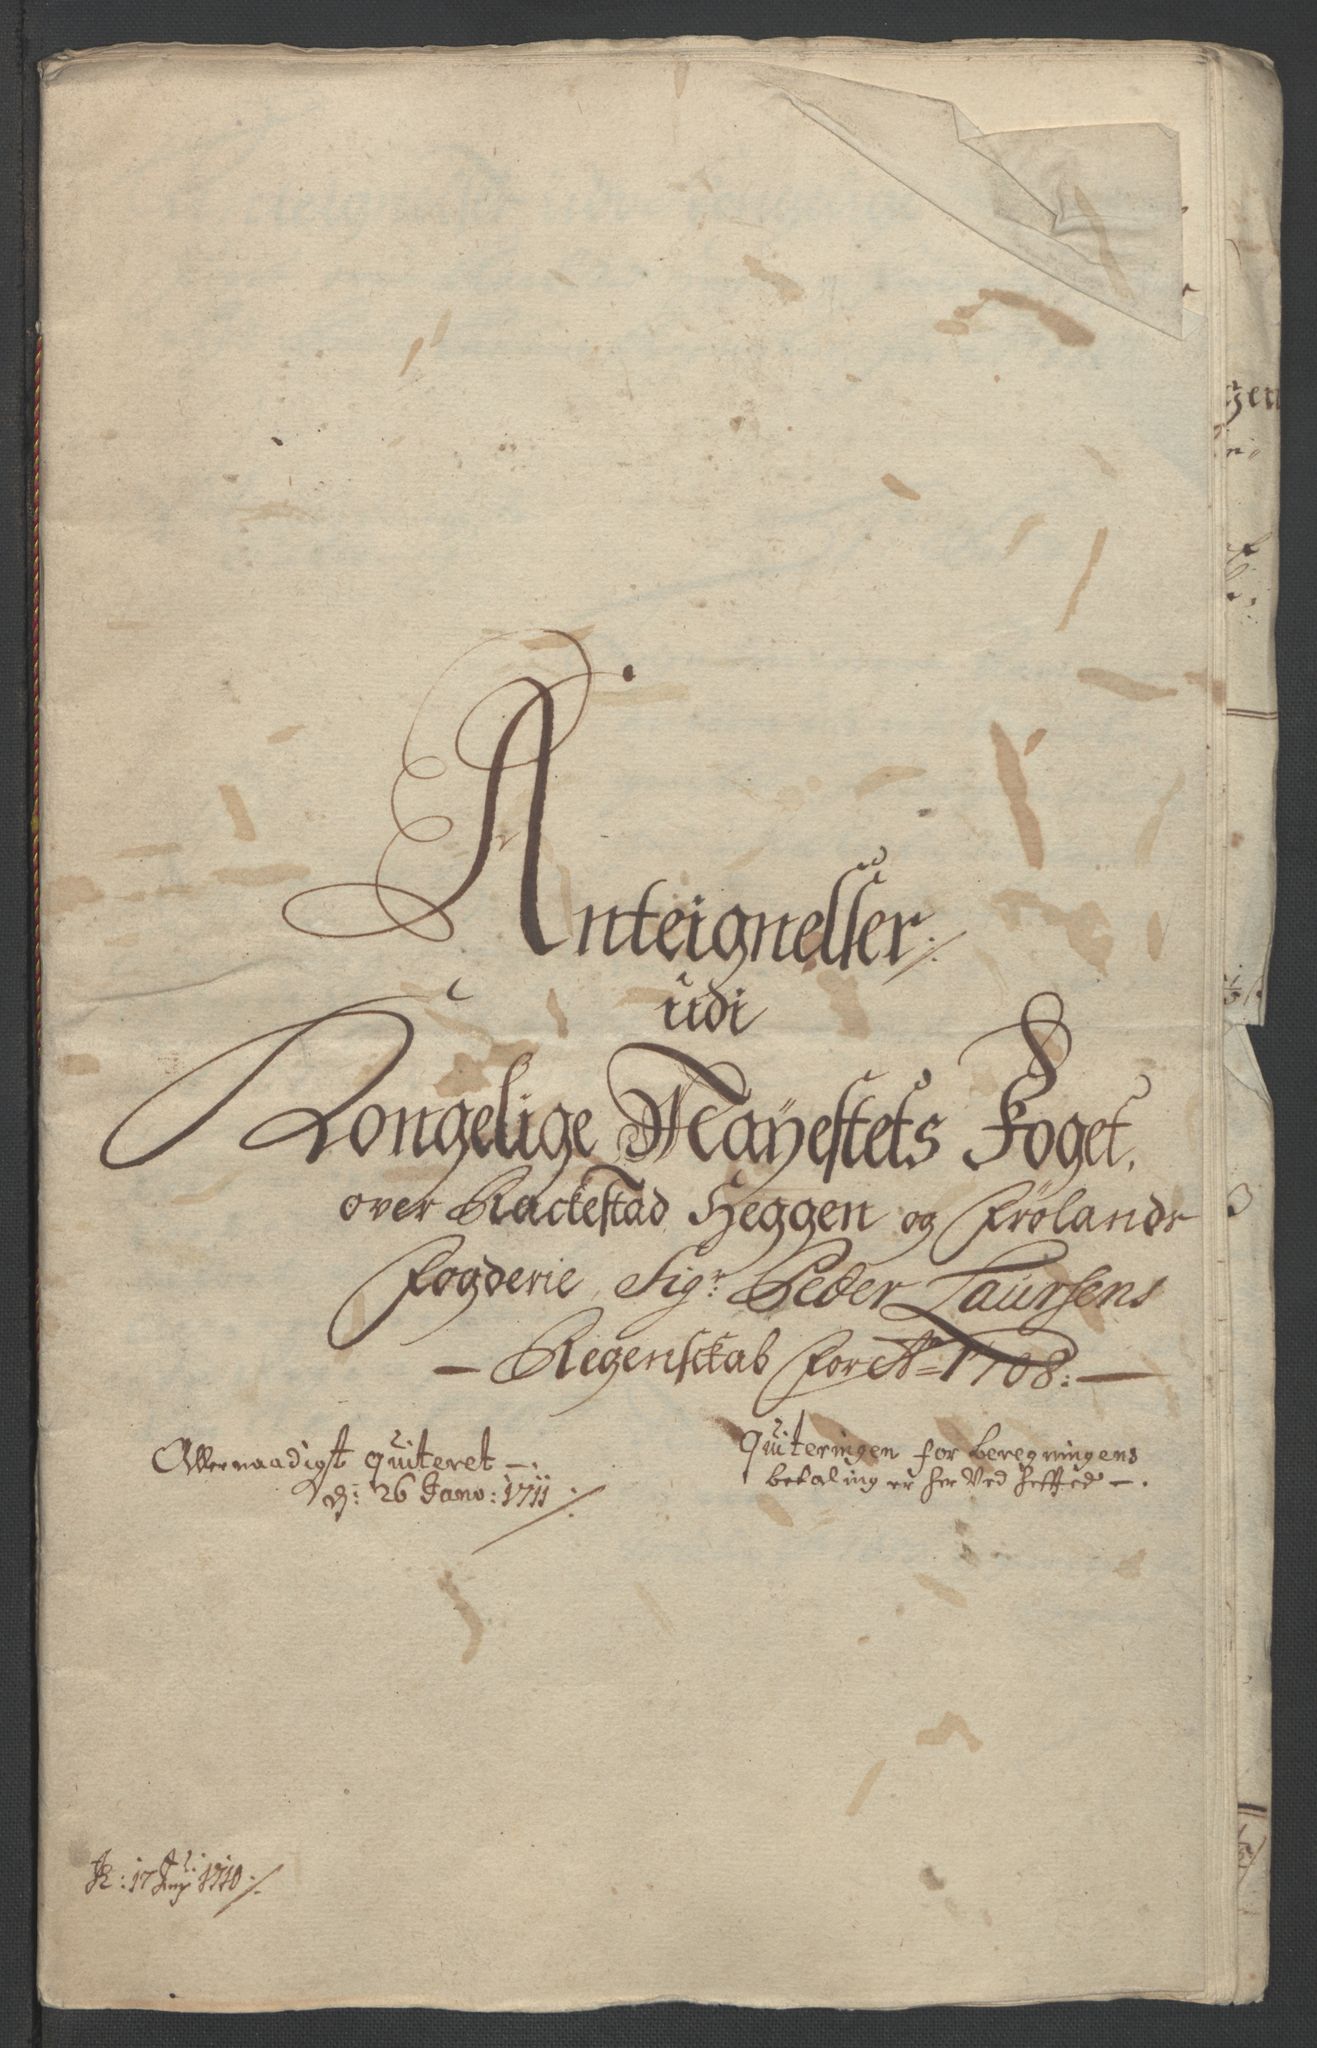 Anteignelser
udi
Kongelige Mayestets Foget,
over Rackestad Heggen og Frölands
Fogderie, Sigr Peder Laursens
— Regenskab for Ao 1708: —
Allernaadigst quiteret —.
dj: 26 Janv: 1711
Quiteringen for beregningens
betaling er her ved hefftet —.
R: 17 1710